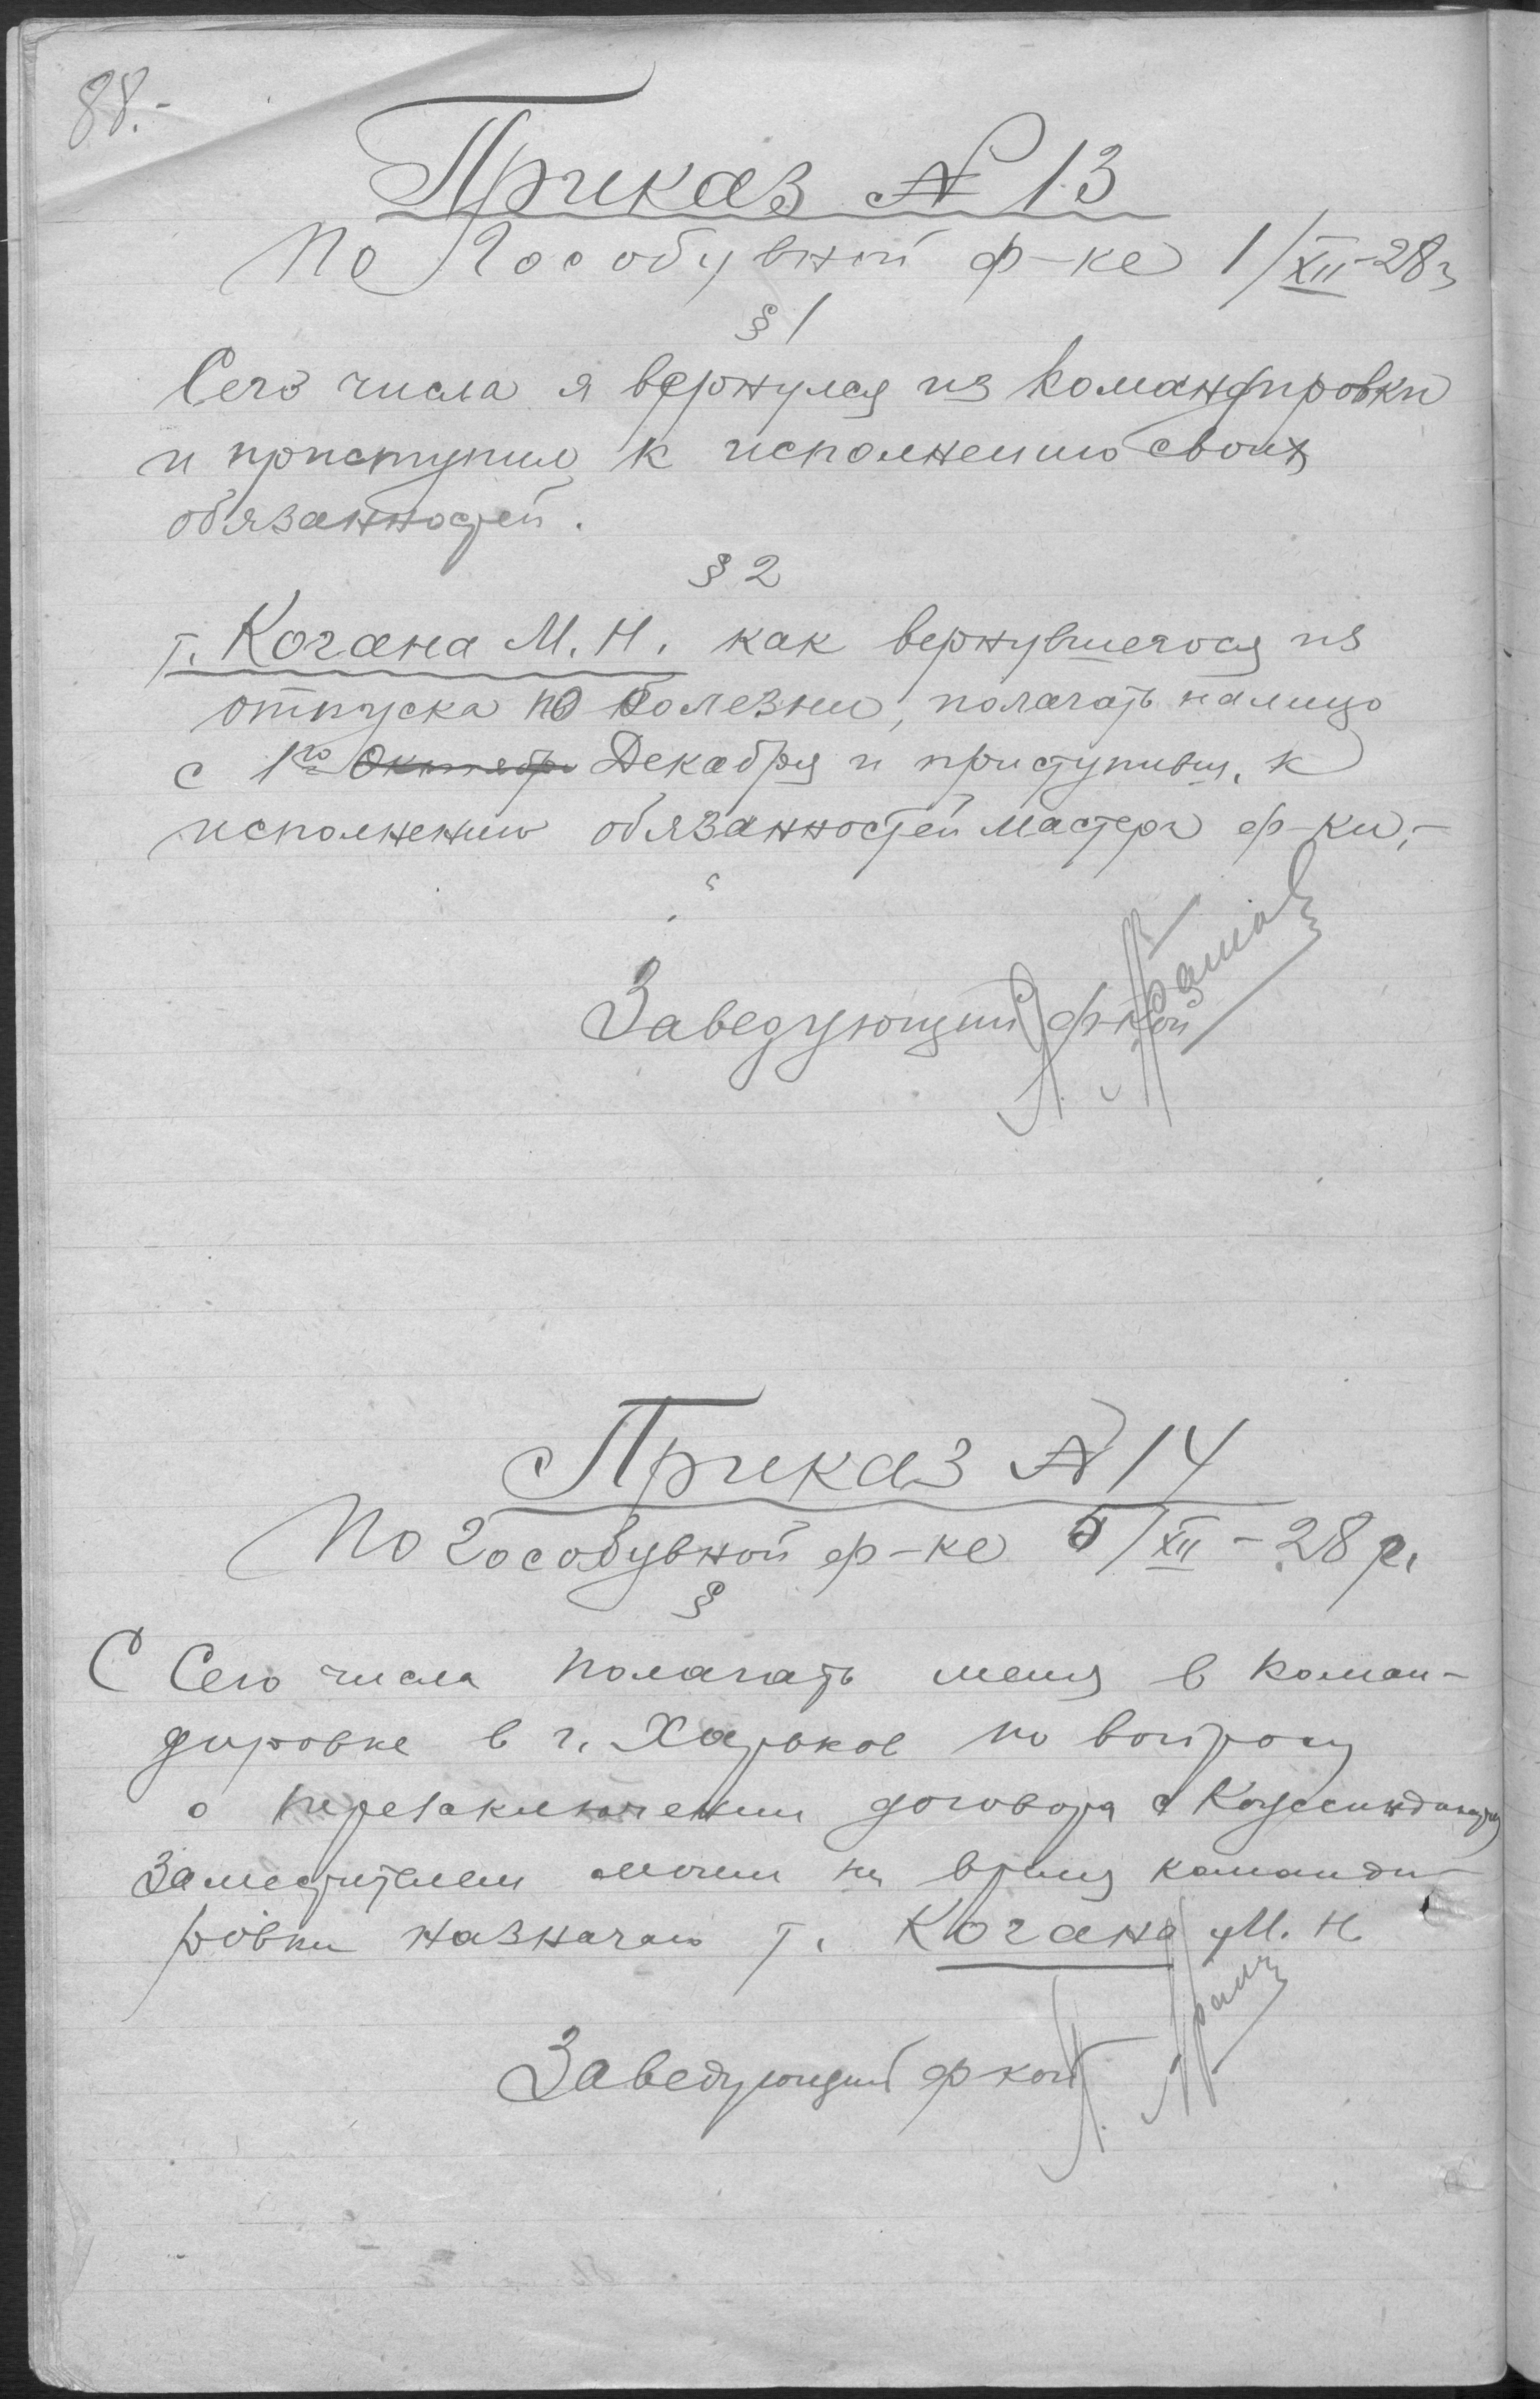 88.-
Приказ № 13
По Гособувной ф-ке 1/XII-28г
§ 1
Сего числа я вернулся из командировки
и приступил к исполнению своих
обязанностей.
§ 2
т. Когана М. Н. как вернувшегося из
отпуска по болезни, полагать налицо
с 1го Октября Декабря и приступивш. к
исполнению обязанностей мастера ф-ки.-
Заведующий ф-кой
Приказ № 14
По Гособувной ф-ке 5/XII-28 г.
§
С Сего числа полагать меня в коман-
дировке в г. Харьков по вопросу
о перезаключении договора с
Заместителем моим на время команди-
ровки назначаю т. Когана М. Н.
Заведующий ф-кой